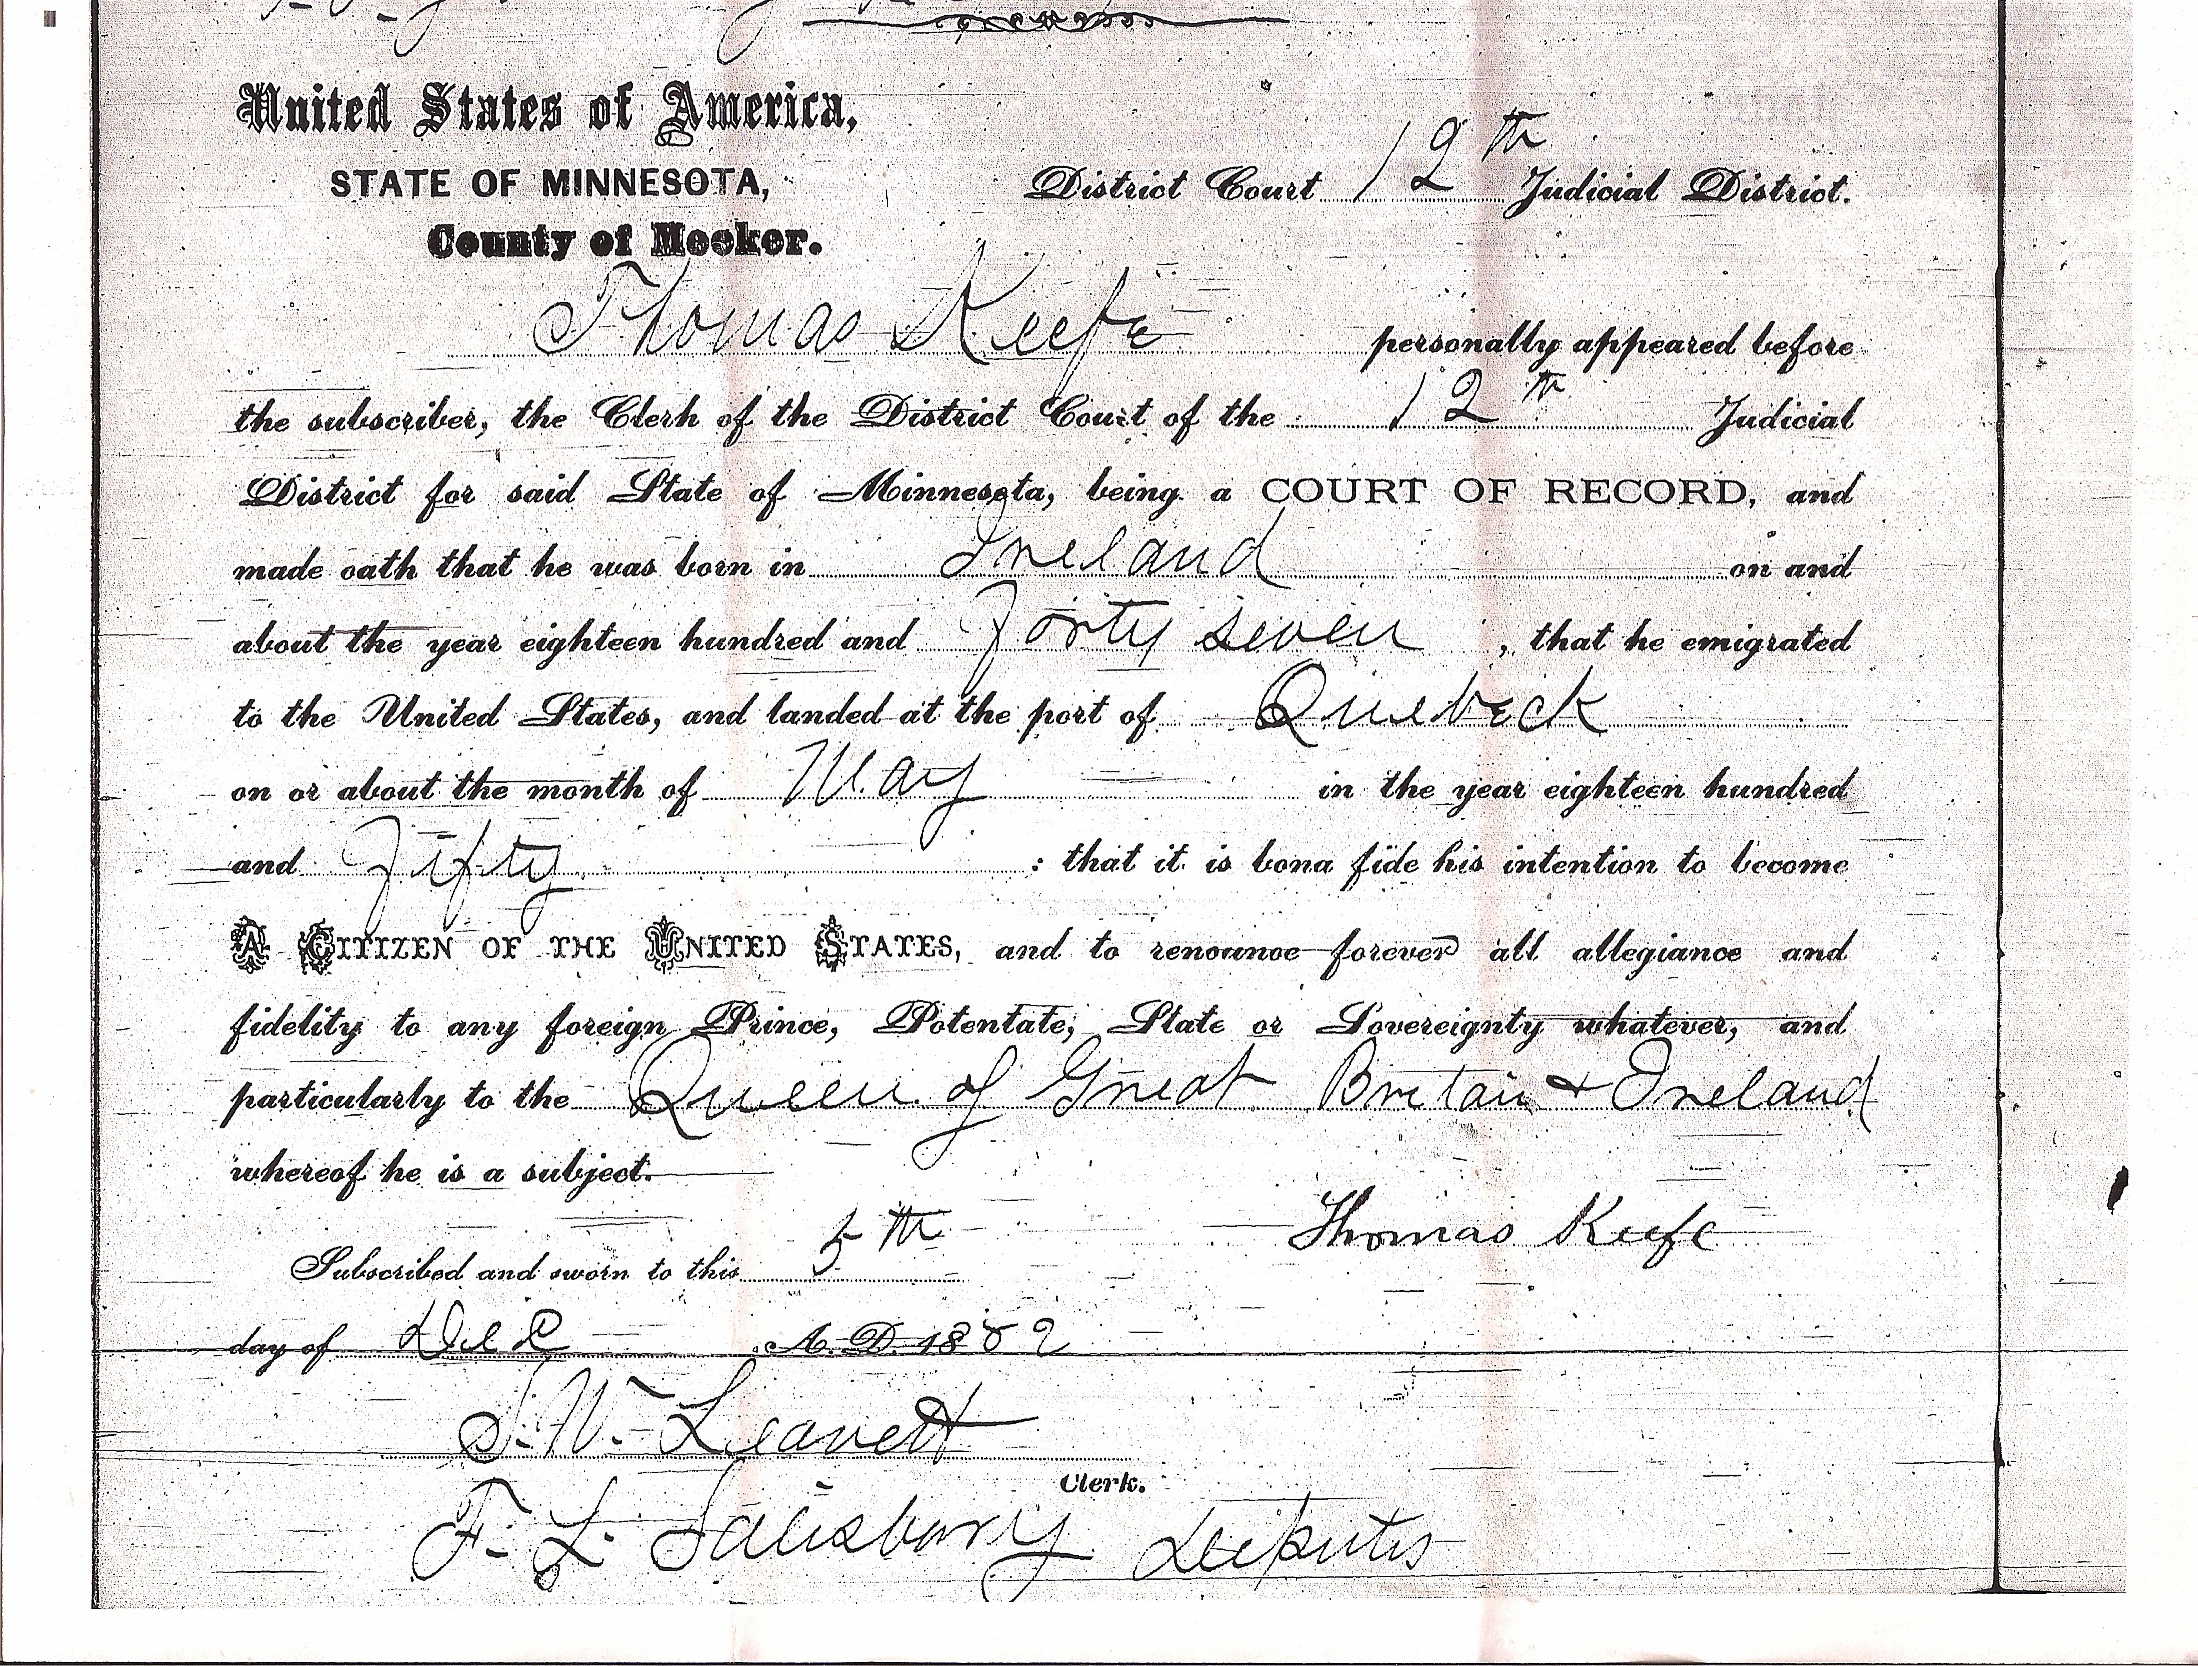 United States of America,
STATE OF MINNESOTA,
District Court 12th Judicial District.
County of Meeker.
Thomas Keefe personally appeared before
the subscriber, the Clerk of the District Court of the 12th Judicial
District for said State of Minnesota, being a COURT OF RECORD, and
made oath that he was born in Ireland on and
about the year eighteen hundred and Forty seven, that he emigrated
to the United States, and landed at the port of Quebeck
on or about the month of May in the year eighteen hundred
and Fifty : that it is bona fide his intention to become
A CITIZEN OF THE UNITED STATES, and to renounce forever all allegiance and
fidelity to any foreign Prince, Potentate, State or Sovereignty whatever, and
particularly to the Queen of Great Britain & Ireland
whereof he is a subject.
Thomas Keefe
Subscribed and sworn to this 5th
day of Dec A. D. 1882
S. W. Leavett
Clerk.
F. L. Salisbury Deputy